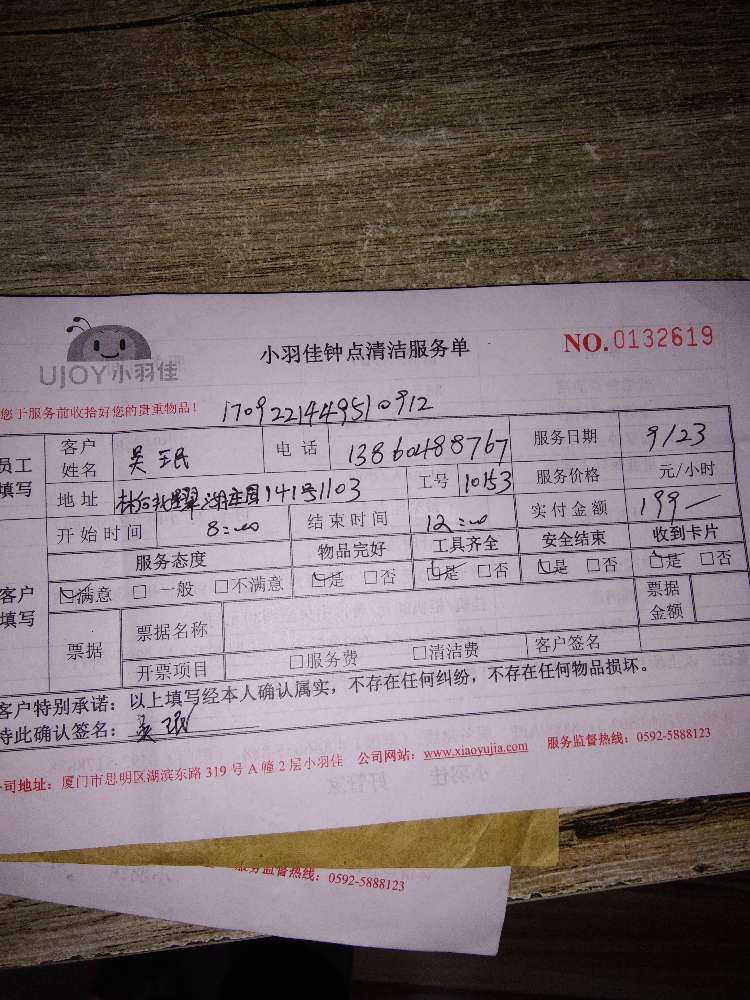 UJOY 小羽佳
小羽佳钟点清洁服务单
NO. 0132619
您于服务前收拾好您的贵重物品！
1709221449510912
员工填写
客户姓名 吴珉 电话 13860488767 服务日期 9/23
地址 141号1103 工号 10153 服务价格 元/小时
客户填写
开始时间 8:00 结束时间 12:00 实付金额 199
服务态度 物品完好 工具齐全 安全结束 收到卡片
☑满意 □一般 □不满意 ☑是 □否 ☑是 □否 ☑是 □否 ☑是 □否
票据 票据名称 票据金额
开票项目 □服务费 □清洁费 客户签名
客户特别承诺：以上填写经本人确认属实，不存在任何纠纷，不存在任何物品损坏。
特此确认签名：吴珉
公司地址：厦门市思明区湖滨东路 319 号 A 幢 2 层小羽佳 公司网站：www.xiaoyujia.com 服务监督热线：0592-5888123
服务监督热线：0592-5888123